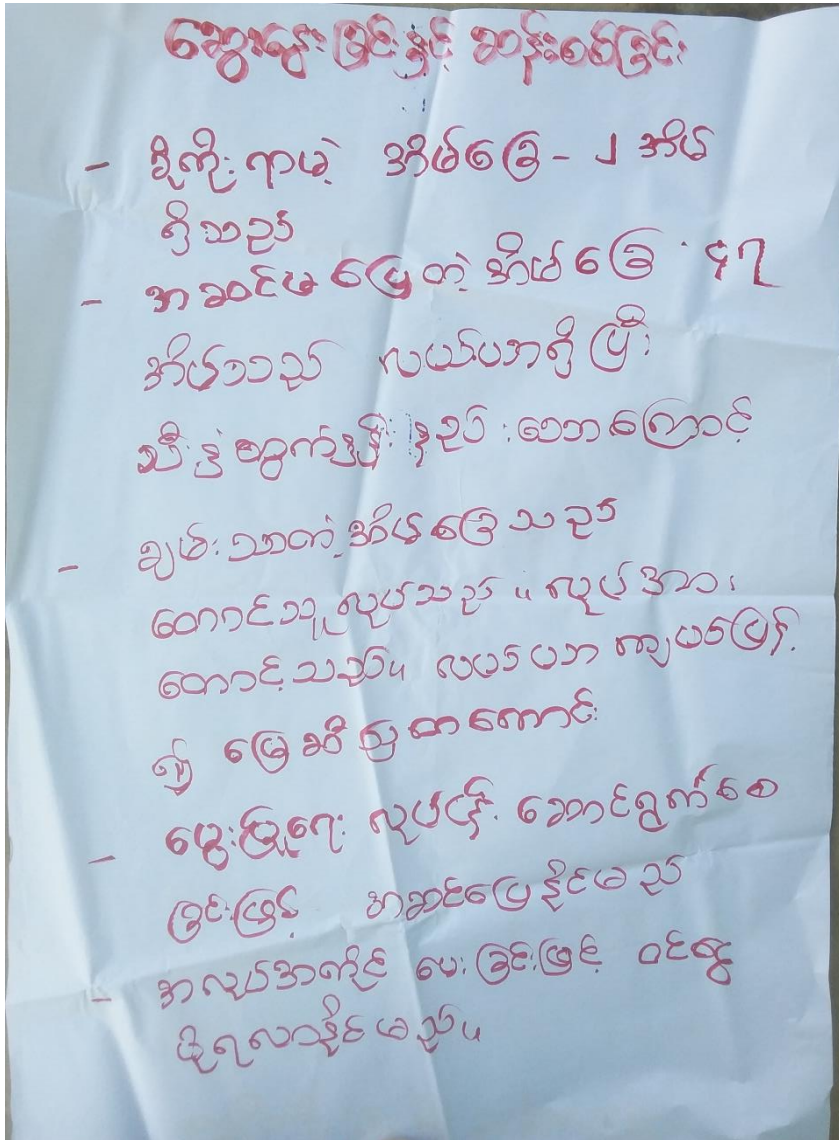 ဆွေးနွေးခြင်းနှင့် ဆန်းစစ်ခြင်း
- ခိုကိုးရာမဲ့ အိမ်ခြေ - ၂ အိမ်
ရှိသည်
- အဆင်မပြေတဲ့ အိမ်ခြေ ၄၇
အိမ်သည် လယ်ယာရှိပြီး
သီးနှံထွက်နှုန်းနည်းသောကြောင့်
- ချမ်းသာတဲ့ အိမ်ခြေသည်
တောင်သူလုပ်သည်။ လုပ်အား
တောင့်သည်။ လယ်ယာကျယ်ပြန့်
၍ မြေဆီဩဇာကောင်း
- မွေးမြူရေး လုပ်ငန်း ဆောင်ရွက်စေ
ခြင်းဖြင့် အဆင်ပြေနိုင်မည်
- အလုပ်အကိုင် ပေးခြင်းဖြင့် ဝင်ငွေ
ပိုရလာနိုင်မည်။